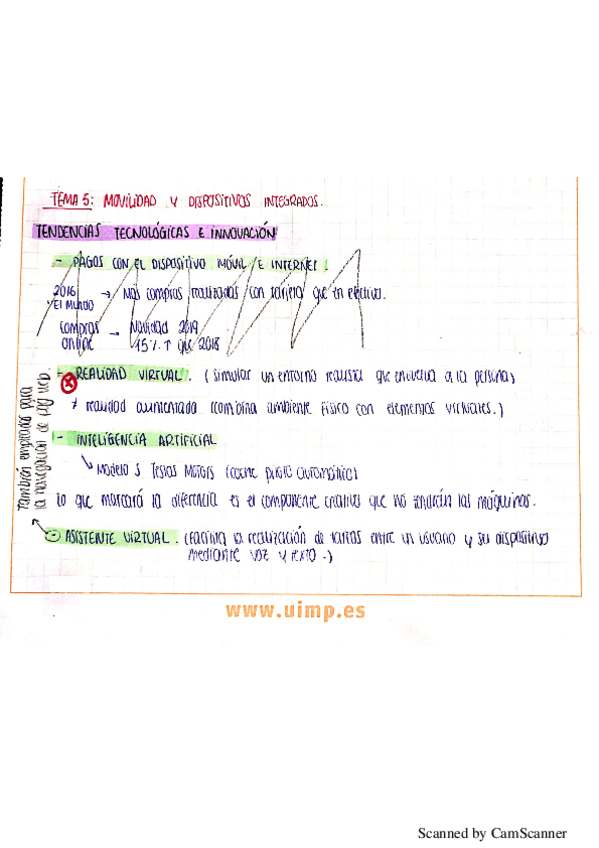 TEMA 5: MOVILIDAD Y DISPOSITIVOS INTEGRADOS.
TENDENCIAS TECNOLÓGICAS E INNOVACIÓN
- PAGOS CON EL DISPOSITIVO MÓVIL E INTERNET.
2016 → Más compras realizadas con tarjeta que en efectivo.
EL MUNDO
compras → Navidad 2019
online 15% ↑ que 2018
- REALIDAD VIRTUAL. (simular un entorno realista que envuelva a la persona)
≠ realidad aumentada (combina ambiente físico con elementos virtuales.)
- INTELIGENCIA ARTIFICIAL
↳ Modelo S Teslas Motors (coche piloto automático)
lo que marcará la diferencia es el componente creativo que no tendrán las máquinas.
- ASISTENTE VIRTUAL. (Facilita la realización de tareas entre un usuario y su dispositivo
mediante voz y texto.)
También empleadas para
la navegación de pág web.
www.uimp.es
Scanned by CamScanner